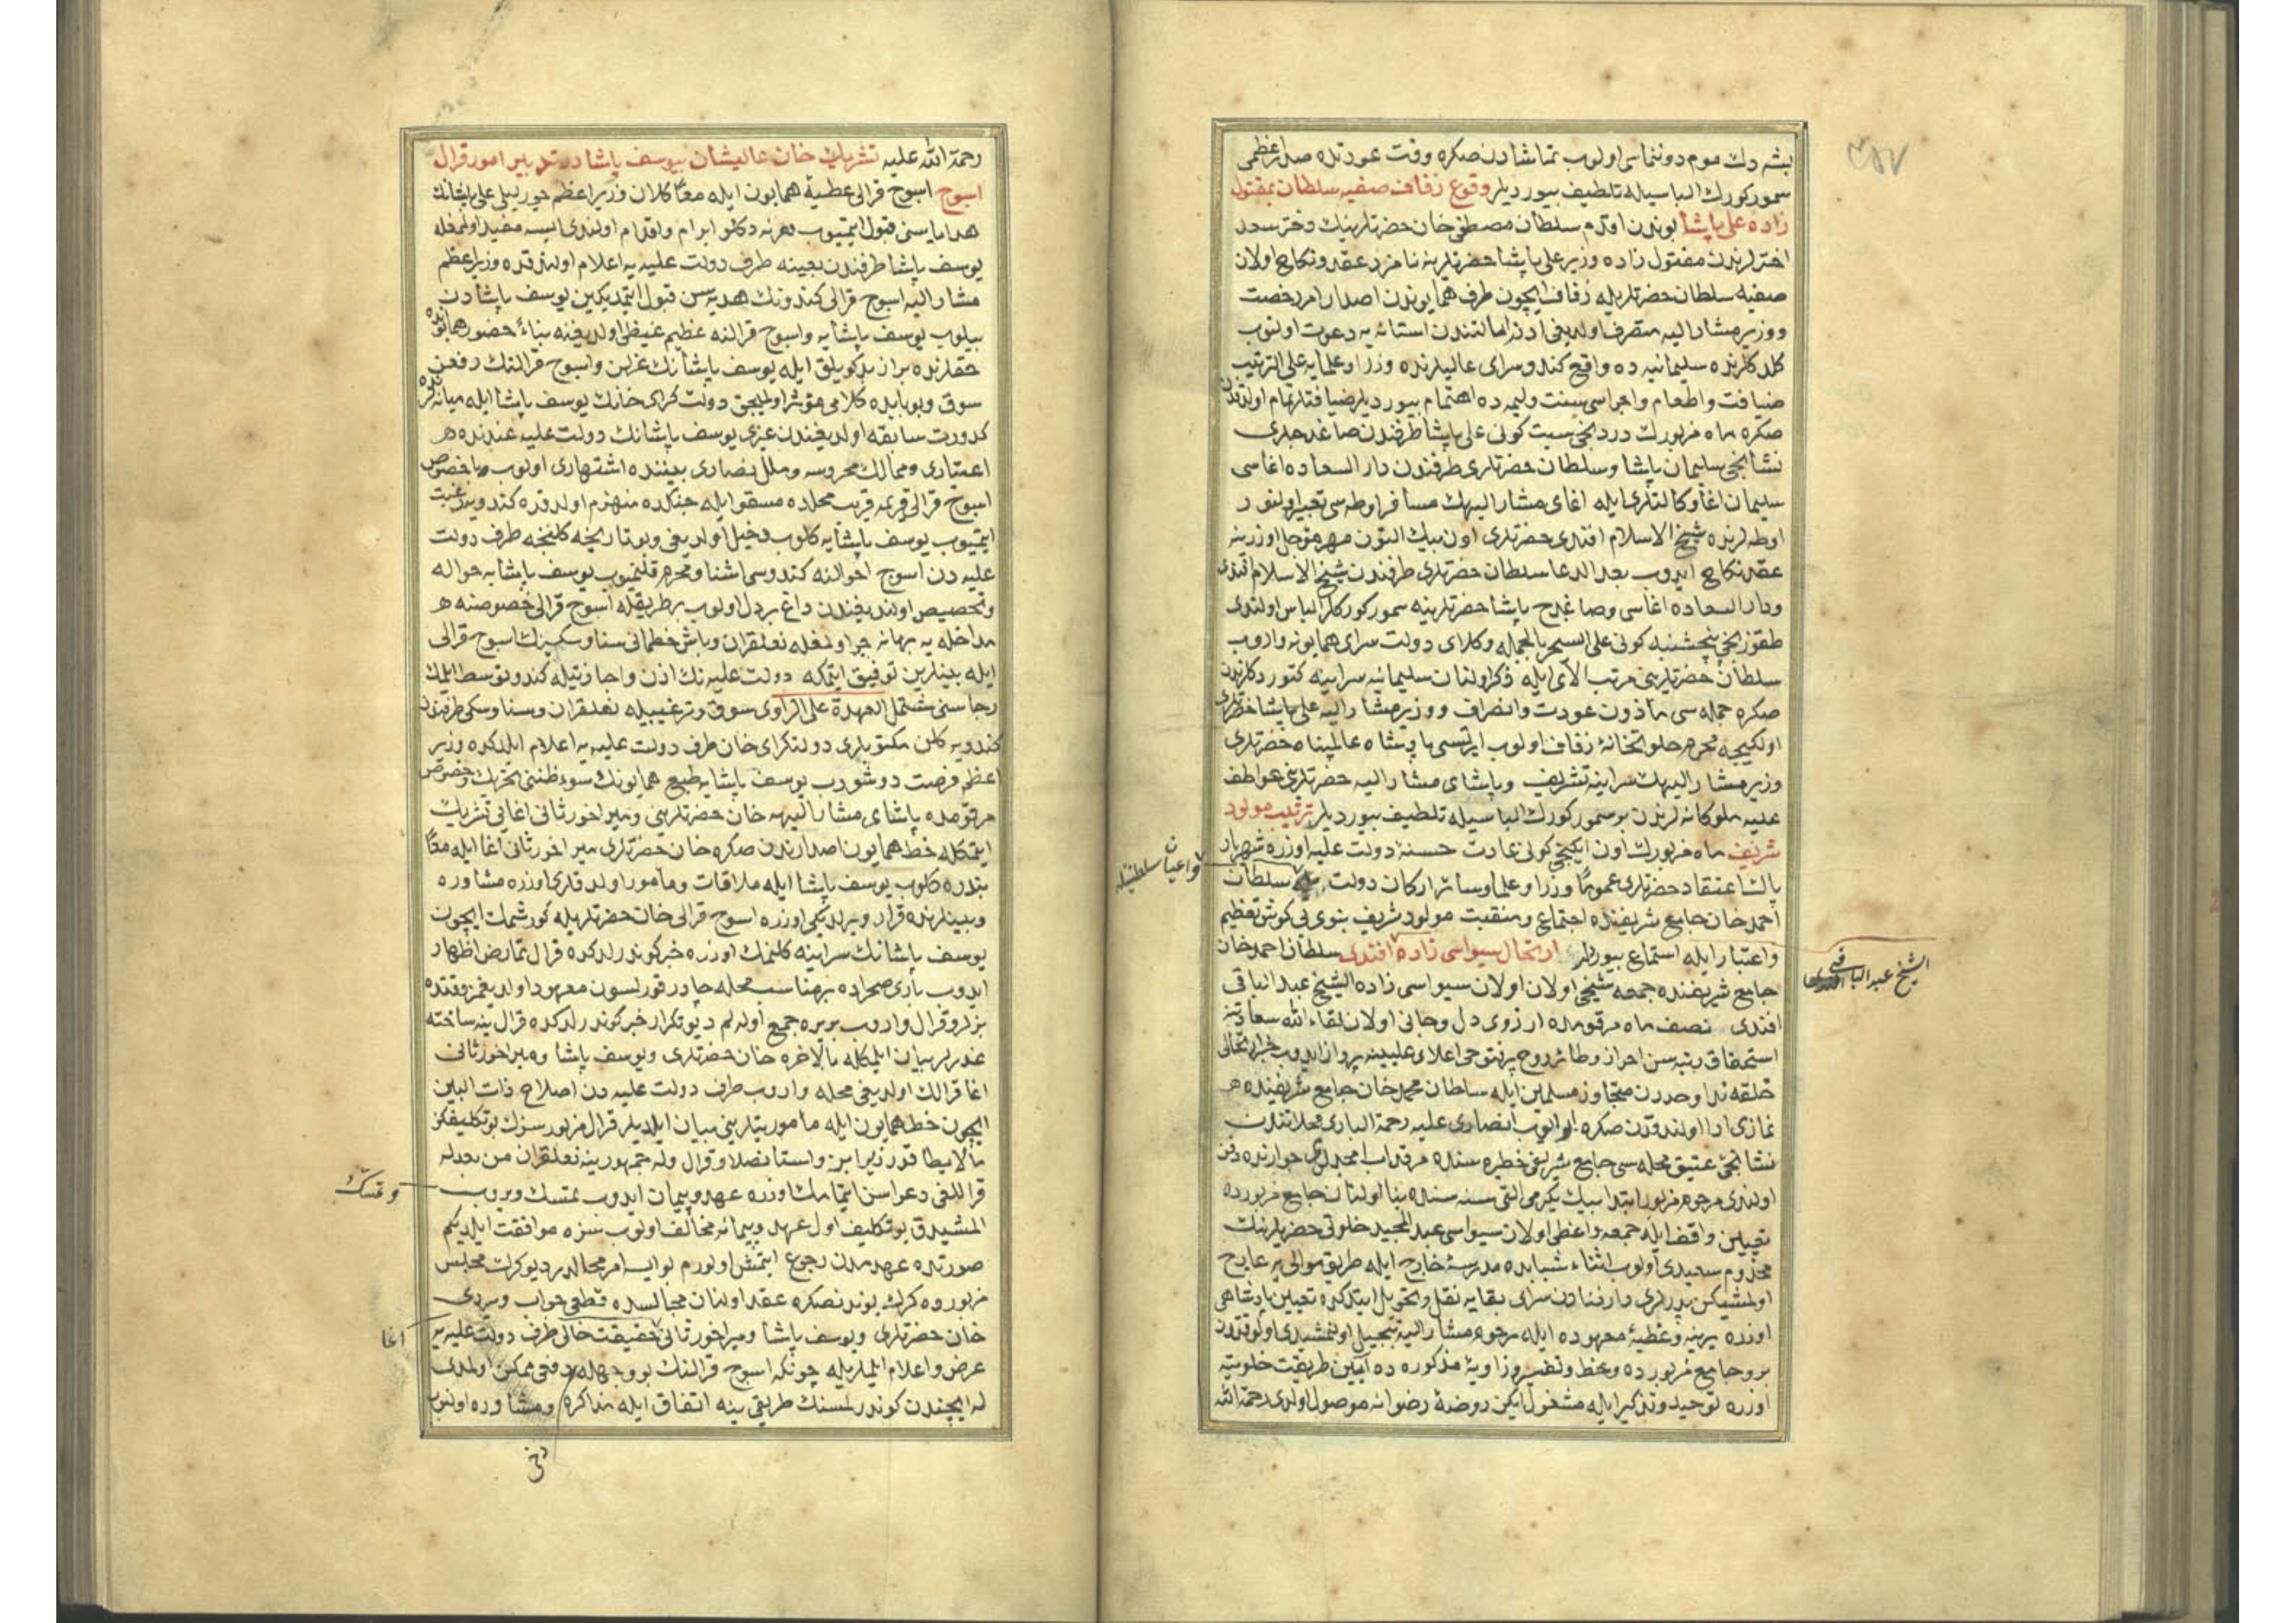 ٣٥٧
بشه دك موم دوننماسى اولوب تماشادن صكره وقت عودتده صدر اعظمى
سمور كورك الباسيله تلطيف بيورديلر وقوع زفاف صفيه سلطان بمقتول
زاده على پاشا بوندن اقدم سلطان مصطفى خان حضرتلرينك دختر سعد
اخترلرندن مقتول زاده وزير على پاشا حضرتلرينه نامزد عقد ونكاح اولان
صفيه سلطان حضرتلريله زفاف ايچون طرف همايوندن اصدار امر رخصت
ووزير مشار اليه متصرف اولديغى ادنه ايالتندن استانه يه دعوت اولنوب
كلدكلرنده سليمانيه ده واقع كندو سراى عاليلرنده وزرا وعلمايه على الترتيب
ضيافت واطعام واجراسى سنت وليمه ده اهتمام بيورديلر ضيافتلر تمام اولدقدن
صكره ماه مزبورك دردنجى سبت كونى على پاشا طرفندن صاغدجلرى
نشانجى سليمان پاشا وسلطان حضرتلرى طرفندن دار السعاده اغاسى
سليمان اغا وكالتلرى ايله اغاى مشار اليهك مسافر اوطه سى تعبير اولنور
اوطه لرنده شيخ الاسلام افندى حضرتلرى اون بيك التون مهر مؤجل اوزرينه
عقد نكاح ايدوب بعد الدعا سلطان حضرتلرى طرفندن شيخ الاسلام افندى
ودار السعاده اغاسى وصاغدج پاشا حضرتلرينه سمور كوركلر الباس اولندى
طقوزنجى پنچشنبه كونى على السحر بالجمله وكلاى دولت سراى همايونه واروب
سلطان حضرتلرينى مرتب الاى ايله ذكر اولنان سليمانيه سراينه كتوردكلرندن
صكره جمله سى مأذون عودت وانصراف ووزير مشار اليه على پاشا حضرتلرى
اولكيجه محرم خلوتخانهٔ زفاف اولوب ايرتسى پادشاه عالمپناه حضرتلرى
وزير مشار اليهك سراينه تشريف وپاشاى مشار اليه حضرتلرينى عواطف
عليه ملوكانه لرندن بر سمور كورك الباسيله تلطيف بيورديلر ترتيب مولود
شريف ماه مزبورك اون ايكنجى كونى عادت حسنهٔ دولت عليه اوزره شهريار
پاك اعتقاد حضرتلرى عموما وزرا وعلما وسائر اركان دولت سلطان
واعيان سلطنتله
احمد خان جامع شريفنده اجتماع ومنقبت مولود شريف نبوى يى كوش تعظيم
واعتبار ايله استماع بيورديلر ارتحال سيواسى زاده افندى سلطان احمد خان
الشيخ عبد الباقى
جامع شريفنده جمعه شيخى اولان اولان سيواسى زاده الشيخ عبد الباقى
افندى نصف ماه مرقومده ارزوى دل وجانى اولان لقاء الله سعادتنه
استحقاق رتبه سن احراز وطائر روح پرفتوحى اعلاى عليينه پرواز ايدوب خبر ارتحالى
حلقه ندا وحددن متجاوز مسلمين ايله سلطان محمد خان جامع شريفنده
نمازى ادا اولندقدن صكره ابو ايوب انصارى عليه رحمة البارى محلاتندن
نشانجى عتيق محله سى جامع شريفى خطيره سنده مرقد اب امجدلرى جوارنده دفن
اولندى مرحوم مزبور ابتدا بيك يكرمى التى سنه سنده بنا اولنان جامع مزبورده
تعيين واقف ايله جمعه واعظى اولان سيواسى عبد المجيد خلوتى حضرتلرينك
مخدوم سعيدى اولوب اثناء شبابده مدرسهٔ خارج ايله طريق موالى يه عارج
اولمشيكن پدرلرى دار فنادن سراى بقايه نقل وتحويل ايتدكده تعيين پادشاهى
اوزره يرينه وعطيهٔ معهوده ايله مرحوم مشار اليه تبجيل اولنمشيدى اولوقتدن
برو جامع مزبورده وعظ وتفسير وزاويهٔ مذكوره ده آيين طريقت خلوتيه
اوزره توحيد وتذكير ايله مشغول ايكن روضهٔ رضوانه موصول اولدى رحمة الله
رحمة الله عليه تشريك خان عاليشان بيوسف پاشا در تدبير امور قرال
اسوج اسوج قرالى عطيهٔ همايون ايله معا كلان وزير اعظم چورليلى على پاشانك
هداياسنى قبول ايتميوب هر نه دكلو ابرام واقدام اولندى ايسه مفيد اولمغله
يوسف پاشا طرفندن بعينه طرف دولت عليه يه اعلام اولندقده وزير اعظم
مشار اليه اسوج قرالى كندونك هديه سن قبول ايتمديكين يوسف پاشادن
بيلوب يوسف پاشايه واسوج قرالنه عظيم غيظى اولديغنه بناءً حضور همايونده
حقلرنده براز بدكويلق ايله يوسف پاشانك عزلن واسوج قرالنك رفعن
سوق وبو بابده كلامى مؤثر اولميجق دولت كراى خانك يوسف پاشا ايله ميانه لرنده
كدورت سابقه اولديغندن غيرى يوسف پاشانك دولت عليه عندنده
اعتبارى وممالك محروسه وملل نصارى بيننده اشتهارى اولوب باخصوص
اسوج قرالى قريمه قريب محلده مسقو ايله جنكده منهزم اولدقده كندويه رغبت
ايتميوب يوسف پاشايه كلوب دخيل اولديغى وبو تاريخه كلنجه طرف دولت
عليه دن اسوج احوالنه كندوسى اشنا ومحرم قلنميوب يوسف پاشايه حواله
وتخصيص اولنديغندن داغ بردل اولوب بر طريقله اسوج قرالى خصوصنه
مداخله يه بهانه جو اولمغله نعلقران وباش خطمانى سناوسكينك اسوج قرالى
ايله بينلرين توفيق ايتمكه دولت عليه نك اذن واجازتيله كندو توسط ايلمك
رجاسنى مشتمل العهدة على الراوى سوق وترغيبيله نعلقران وسناوسكى طرفندن
كندويه كلن مكتوبلرى دولتكراى خان طرف دولت عليه يه اعلام ايلدكده وزير
اعظم فرصت دوشورب يوسف پاشايه طبع همايونك سوء ظننى تحريك وخصوص
مرقومده پاشاى مشار اليهه خان حضرتلرينى ومير اخور ثانى اغايى تشريك
ايتمكله خط همايون اصدارندن صكره خان حضرتلرى مير اخور ثانى اغا ايله معا
بندره كلوب يوسف پاشا ايله ملاقات ومأمور اولدقلرى اوزره مشاوره
وبينلرنده قرار ويرلديكى اوزره اسوج قرالى خان حضرتلريله كورشمك ايچون
يوسف پاشانك سراينه كلنمك اوزره خبر كوندرلدكده قرال تمارض اظهار
ايدوب بارى صحراده بر مناسب محله چادر قورلسون معهود اولديغمز وقتده
بزلر وقرال واروب بر يره جمع اوله لم ديو تكرار خبر كوندرلدكده قرال ينه ساخته
عذرلر بيان ايلمكله بالآخره خان حضرتلرى ويوسف پاشا ومير اخور ثانى
اغا قرالك اولديغى محله واروب طرف دولت عليه دن اصلاح ذات البين
ايچون خط همايون ايله مأموريتلرينى بيان ايلديلر قرال مزبور سزك بو تكليفكز
مالايطاقدر زيرا بن واستانصلاو قرال وله جمهورينه نعلقران من بعد له
قراللغى دعواسن ايتمامك اوزره عهد وپيمان ايدوب تمسك ويروب
وتمسك
المشيدق بو تكليف اول عهد وپيمانه مخالف اولوب سزه موافقت ايلديكم
صورتده عهدمدن رجوع ايتمش اولورم بو ايسه امر محالدر ديو كرك مجلس
مزبورده كرك بوندنصكره عقد اولنان مجالسده قطعى جواب ويردى
خان حضرتلرى ويوسف پاشا ومير اخور ثانى حقيقت حالى طرف دولت عليه يه
اغا
عرض واعلام ايلديلر چونكه اسوج قرالنك بو وجهله دفعى ممكن اولمدى
له ايچندن كوندرلمسنك طريقى ينه اتفاق ايله مذاكره ومشاوره اولنوب